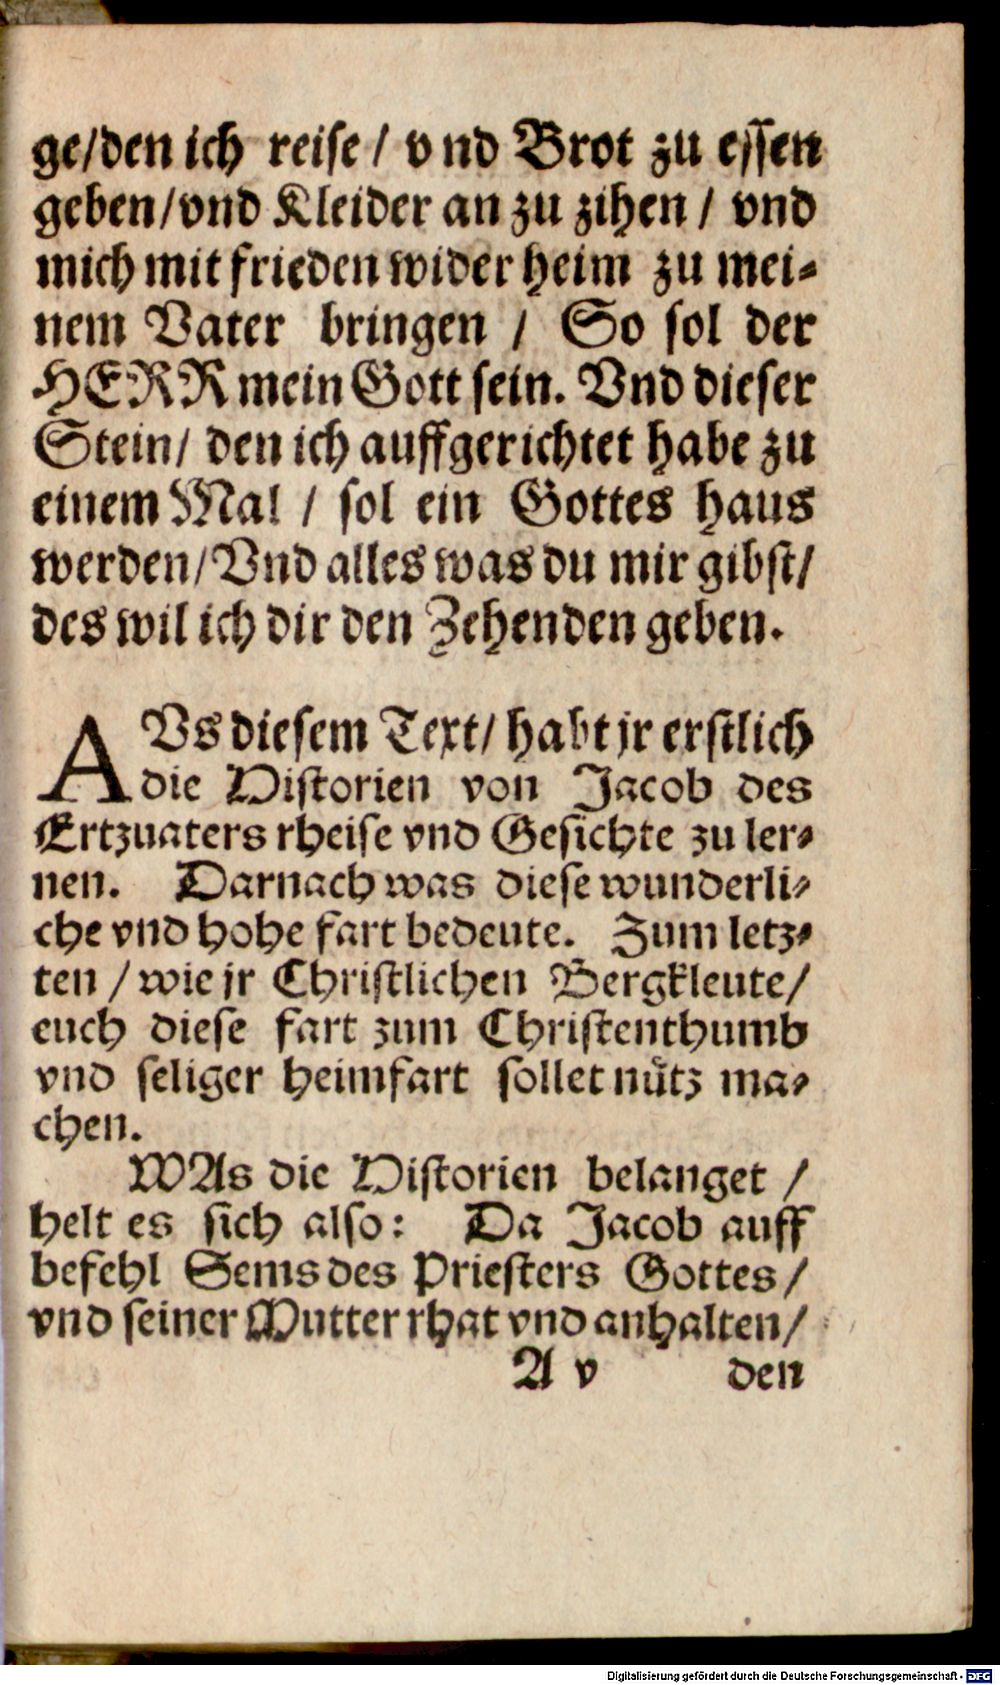 ge/den ich reise / vnd Brot zu essen
geben/vnd Kleider an zu zihen / vnd
mich mit frieden wider heim zu mei-
nem Vater bringen / So sol der
HERR mein Gott sein. Vnd dieser
Stein/ den ich auffgerichtet habe zu
einem Mal / sol ein Gottes haus
werden/Vnd alles was du mir gibst/
des wil ich dir den Zehenden geben.
AVs diesem Text/ habt jr erstlich
die Historien von Jacob des
Ertzuaters rheise vnd Gesichte zu ler-
nen. Darnach was diese wunderli-
che vnd hohe fart bedeute. Zum letz-
ten / wie jr Christlichen Bergkleute/
euch diese fart zum Christenthumb
vnd seliger heimfart sollet nütz ma-
chen.
WAs die Historien belanget /
helt es sich also: Da Jacob auff
befehl Sems des Priesters Gottes /
vnd seiner Mutter rhat vnd anhalten/
A v den
Digitalisierung gefördert durch die Deutsche Forschungsgemeinschaft - DFG